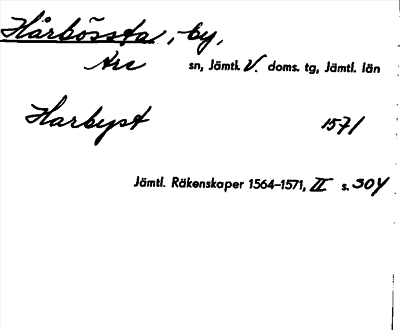 Hårbössta, by,
Ås sn, Jämtl. V. doms. tg, Jämtl. län
Harbyst 1571
Jämtl. Räkenskaper 1564–1571, II s. 304